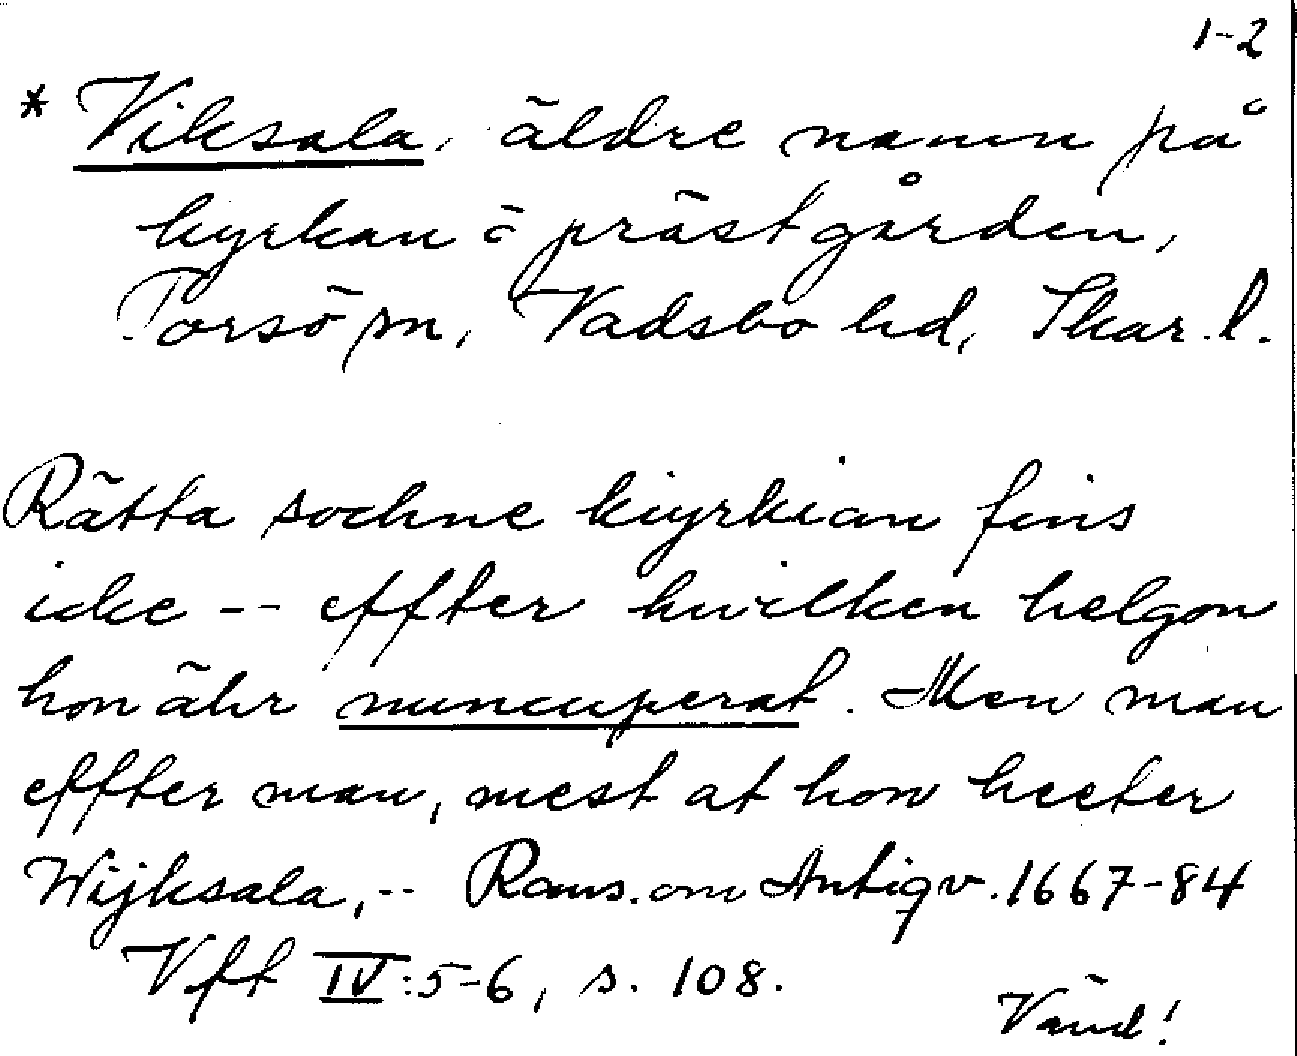 1-2
* Viksala, äldre namn på
kyrkan o prästgården,
Torsö sn, Vadsbo hd, Skar. l.
Rätta sochne kiyrkian fins
icke -- effter hwilken helgon
hon ähr nuncuperat. Men man
effter man, mest at hon heeter
Wijksala, -- Rans. om Antiqv. 1667-84
Vft IV:5-6, s. 108.
Vänd!